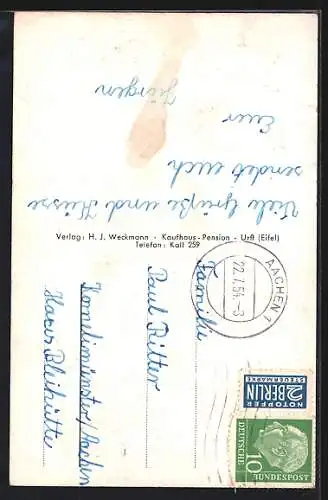 Viele Grüße und Küsse
sendet euch
Euer
Jürgen
Verlag: H. J. Weckmann - Kaufhaus-Pension - Urft (Eifel)
Telefon: Kall 259
Familie
Paul Ritter
Kornelimünster/Aachen
Haus Bleihütte
AACHEN 1
22.7.54.-8
NOTOPFER
2 BERLIN
STEUERMARKE
10
DEUTSCHE BUNDESPOST